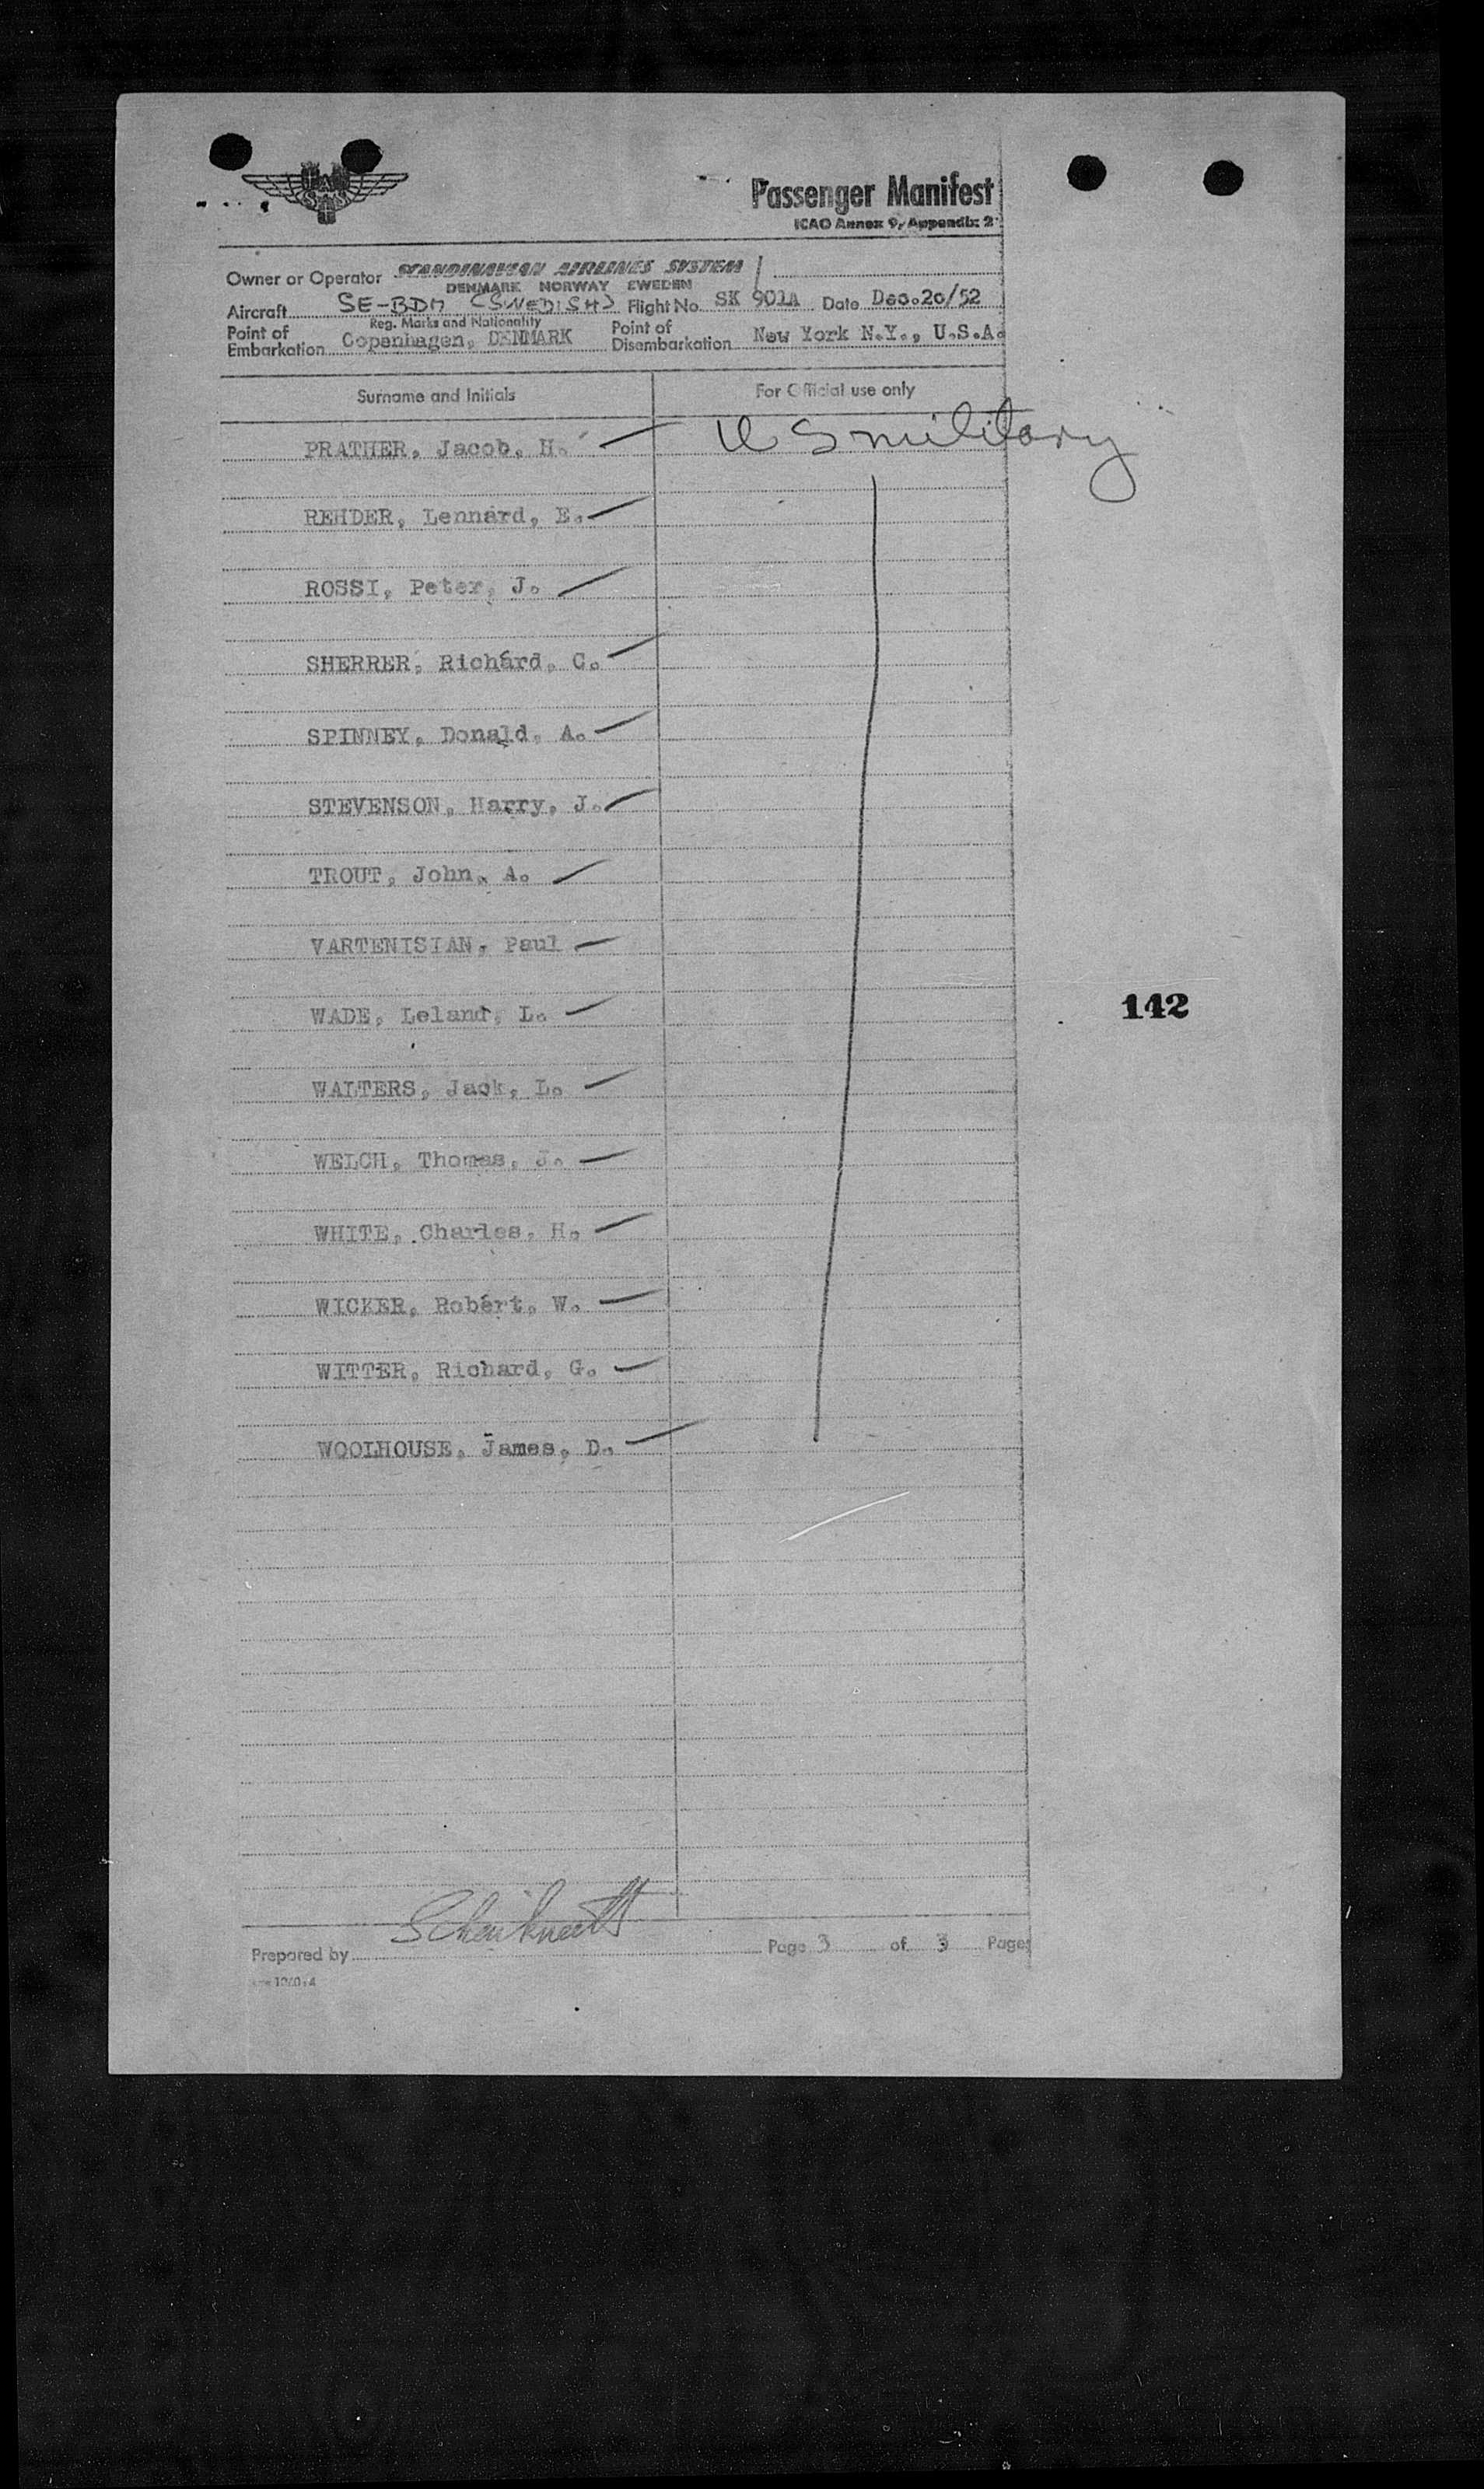 SAS
Passenger Manifest
ICAO Annex 9, Appendix 2
Owner or Operator SCANDINAVIAN AIRLINES SYSTEM
DENMARK NORWAY SWEDEN
Aircraft SE-BDM (SWEDISH) Flight No. SK 901A Date Dec.20/52
Reg. Marks and Nationality
Point of Embarkation Copenhagen, DENMARK Point of Disembarkation New York N.Y., U.S.A.
Surname and Initials For Official use only
PRATHER, Jacob, H. U S military
REHDER, Lennard, E.
ROSSI, Peter, J.
SHERRER, Richard, C.
SPINNEY, Donald, A.
STEVENSON, Harry, J.
TROUT, John, A.
VARTENISIAN, Paul
WADE, Leland, L.
142
WALTERS, Jack, L.
WELCH, Thomas, J.
WHITE, Charles, H.
WICKER, Robert, W.
WITTER, Richard, G.
WOOLHOUSE, James, D.
Prepared by Page 3 of 3 Pages